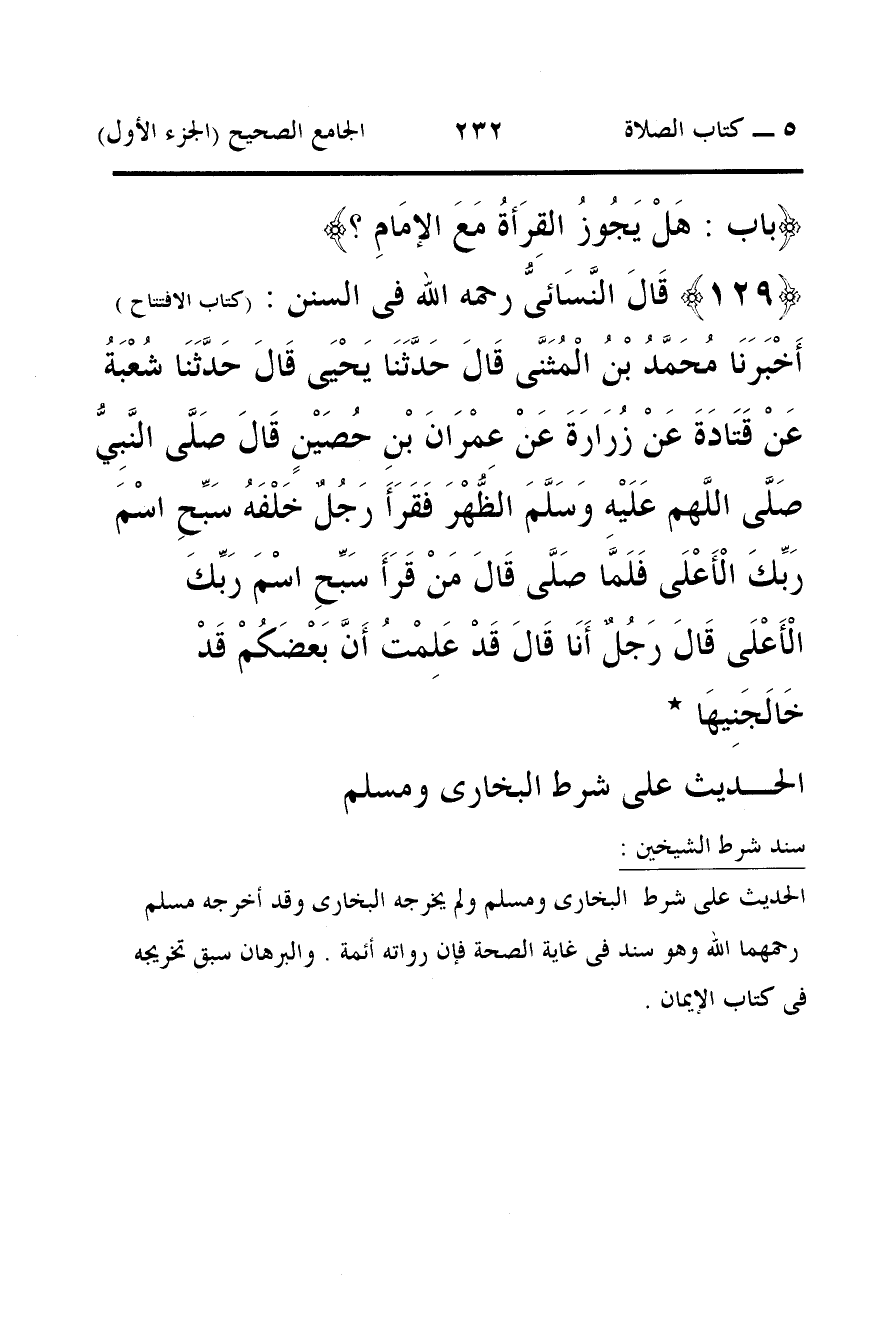 ٥ ـــ كتاب الصلاة ٢٣٢ الجامع الصحيح (الجزء الأول)
﴿باب : هَلْ يَجُوزُ القِرَأةُ مَعَ الإمَامِ ؟﴾
﴿١٢٩﴾ قَالَ النَّسَائىُّ رحمه الله فى السنن : (كتاب الافتتاح )
أَخْبَرَنَا مُحَمَّدُ بْنُ الْمُثَنَّى قَالَ حَدَّثَنَا يَحْيَى قَالَ حَدَّثَنَا شُعْبَةُ
عَنْ قَتَادَةَ عَنْ زُرَارَةَ عَنْ عِمْرَانَ بْنِ حُصَيْنٍ قَالَ صَلَّى النَّبِيُّ
صَلَّى اللَّهم عَلَيْهِ وَسَلَّمَ الظُّهْرَ فَقَرَأَ رَجُلٌ خَلْفَهُ سَبِّحِ اسْمَ
رَبِّكَ الْأَعْلَى فَلَمَّا صَلَّى قَالَ مَنْ قَرَأَ سَبِّحِ اسْمَ رَبِّكَ
الْأَعْلَى قَالَ رَجُلٌ أَنَا قَالَ قَدْ عَلِمْتُ أَنَّ بَعْضَكُمْ قَدْ
خَالَجَنِيهَا *
الحـــديث على شرط البخارى ومسلم
سند شرط الشيخين :
الحديث على شرط البخارى ومسلم ولم يخرجه البخارى وقد أخرجه مسلم
رحمهما الله وهو سند فى غاية الصحة فإن رواته أئمة . والبرهان سبق تخريجه
فى كتاب الإيمان .